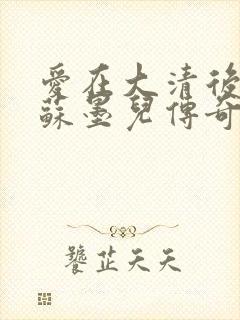 愛在大清後
蘇墨兒傳奇
饕芷天天